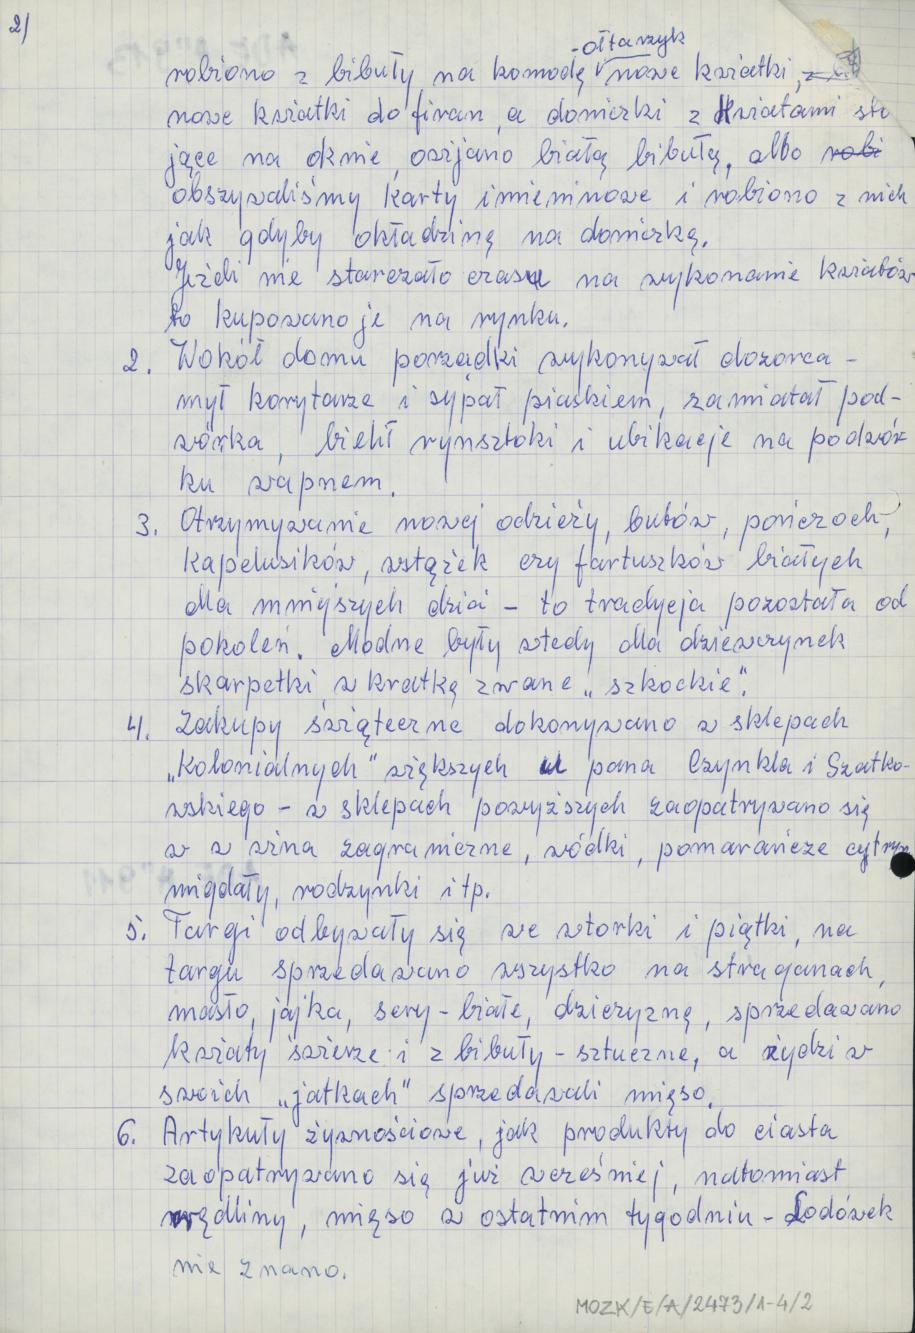 2/
-ołtarzyk
robiono z bibuły na komodę nowe kwiatki,
nowe kwiatki do firan, a doniczki z kwiatami sto
jące na oknie, owijano białą bibułą, albo robi
obszywaliśmy karty imieninowe i robiono z nich
jak gdyby okładzinę na doniczkę.
Jeżeli nie starczało czasu na wykonanie kwiatów
to kupowano je na rynku.
2. Wokół domu porządki wykonywał dozorca -
mył korytarze i sypał piaskiem, zamiatał pod-
wórka, bielił rynsztoki i ubikacje na podwór
ku wapnem.
3. Otrzymywanie nowej odzieży, butów, pończoch,
kapelusików, wstążek czy fartuszków białych
dla mniejszych dzieci - to tradycja pozostała od
pokoleń. Modne były wtedy dla dziewczynek
skarpetki w kratkę zwane „szkockie".
4. Zakupy świąteczne dokonywano w sklepach
„kolonialnych" większych u pana Czynkla i Szatko-
wskiego - w sklepach powyższych zaopatrywano się
w w wina zagraniczne, wódki, pomarańcze cytryn
migdały, rodzynki itp.
5. Targi odbywały się we wtorki i piątki, na
targu sprzedawano wszystko na straganach,
masło, jajka, sery - białe, dziczyznę, sprzedawano
kwiaty świeże i z bibuły - sztuczne, a żydzi w
swoich „jatkach" sprzedawali mięso.
6. Artykuły żywnościowe, jak produkty do ciasta
zaopatrywano się już wcześniej, natomiast
wędliny, mięso w ostatnim tygodniu - Lodówek
nie znano.
MOZK/E/A/2473/1-4/2